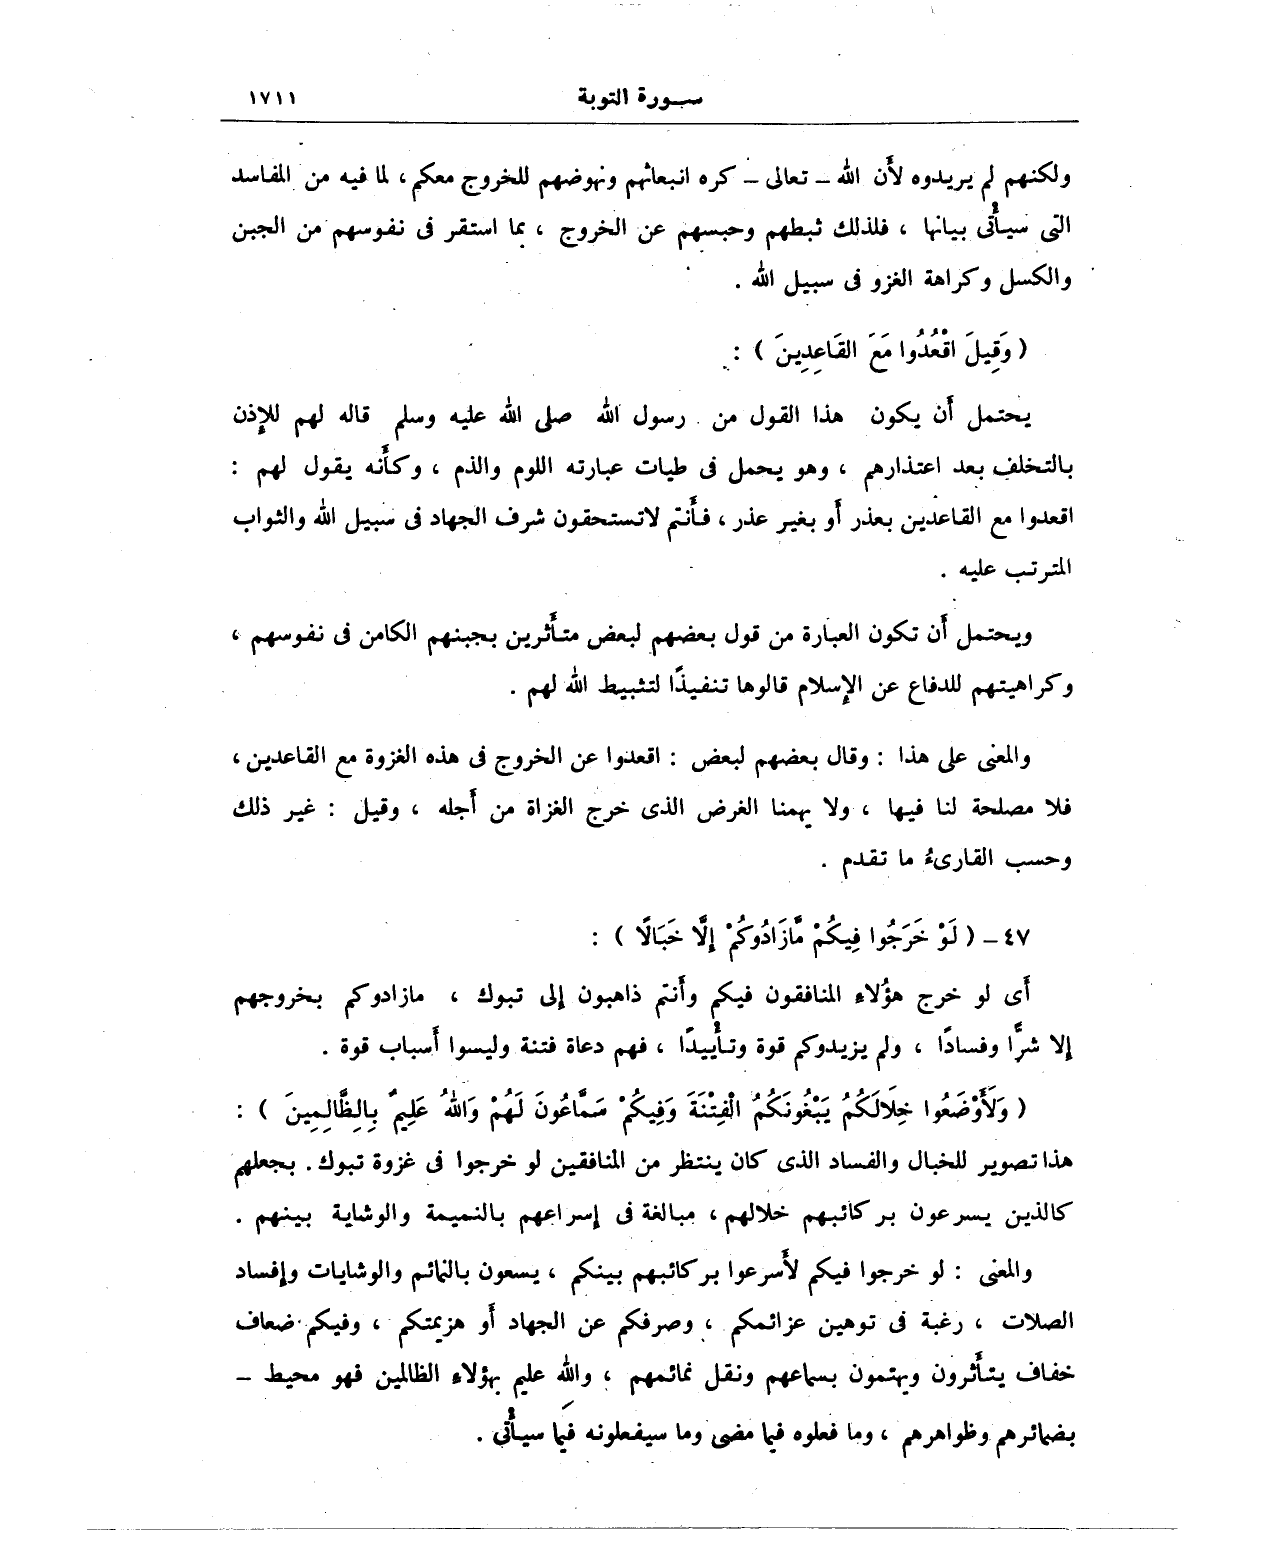 سورة التوبة ١٧١١
ولكنهم لم يريدوه لأن الله ـ تعالى ـ كره انبعاثهم ونهوضهم للخروج معكم ، لما فيه من المفاسد
التى سيأتى بيانها ، فلذلك ثبطهم وحبسهم عن الخروج ، بما استقر فى نفوسهم من الجبن
والكسل وكراهة الغزو فى سبيل الله .
( وَقِيلَ اقْعُدُوا مَعَ القَاعِدِينَ ) :
يحتمل أن يكون هذا القول من رسول الله صلى الله عليه وسلم قاله لهم للإذن
بالتخلف بعد اعتذارهم ، وهو يحمل فى طيات عبارته اللوم والذم ، وكأنه يقول لهم :
اقعدوا مع القاعدين بعذر أو بغير عذر ، فأنتم لاتستحقون شرف الجهاد فى سبيل الله والثواب
المترتب عليه .
ويحتمل أن تكون العبارة من قول بعضهم لبعض متأثرين بجبنهم الكامن فى نفوسهم ،
وكراهيتهم للدفاع عن الإسلام قالوها تنفيذًا لتثبيط الله لهم .
والمعنى على هذا : وقال بعضهم لبعض : اقعدوا عن الخروج فى هذه الغزوة مع القاعدين ،
فلا مصلحة لنا فيها ، ولا يهمنا الغرض الذى خرج الغزاة من أجله ، وقيل : غير ذلك
وحسب القارىءُ ما تقدم .
٤٧ ـ ( لَوْ خَرَجُوا فِيكُمْ مَّازَادُوكُمْ إِلَّا خَبَالًا ) :
أى لو خرج هؤلاء المنافقون فيكم وأنتم ذاهبون إلى تبوك ، مازادوكم بخروجهم
إلا شرًّا وفسادًا ، ولم يزيدوكم قوة وتأييدًا ، فهم دعاة فتنة وليسوا أسباب قوة .
( وَلَأَوْضَعُوا خِلَالَكُمْ يَبْغُونَكُمُ الْفِتْنَةَ وَفِيكُمْ سَمَّاعُونَ لَهُمْ وَاللهُ عَلِيمٌ بِالِظَّالِمِينَ ) :
هذا تصوير للخبال والفساد الذى كان ينتظر من المنافقين لو خرجوا فى غزوة تبوك . بجعلهم
كالذين يسرعون بركائبهم خلالهم ، مبالغة فى إسراعهم بالنميمة والوشاية بينهم .
والمعنى : لو خرجوا فيكم لأسرعوا بركائبهم بينكم ، يسعون بالنمائم والوشايات وإفساد
الصلات ، رغبة فى توهين عزائمكم ، وصرفكم عن الجهاد أو هزيمتكم ، وفيكم ضعاف
خفاف يتأثرون ويهتمون بسماعهم ونقل نمائمهم ، والله عليم بهؤلاء الظالمين فهو محيط ـ
بضمائرهم وظواهرهم ، وما فعلوه فيما مضى وما سيفعلونه فيما سيأتى .